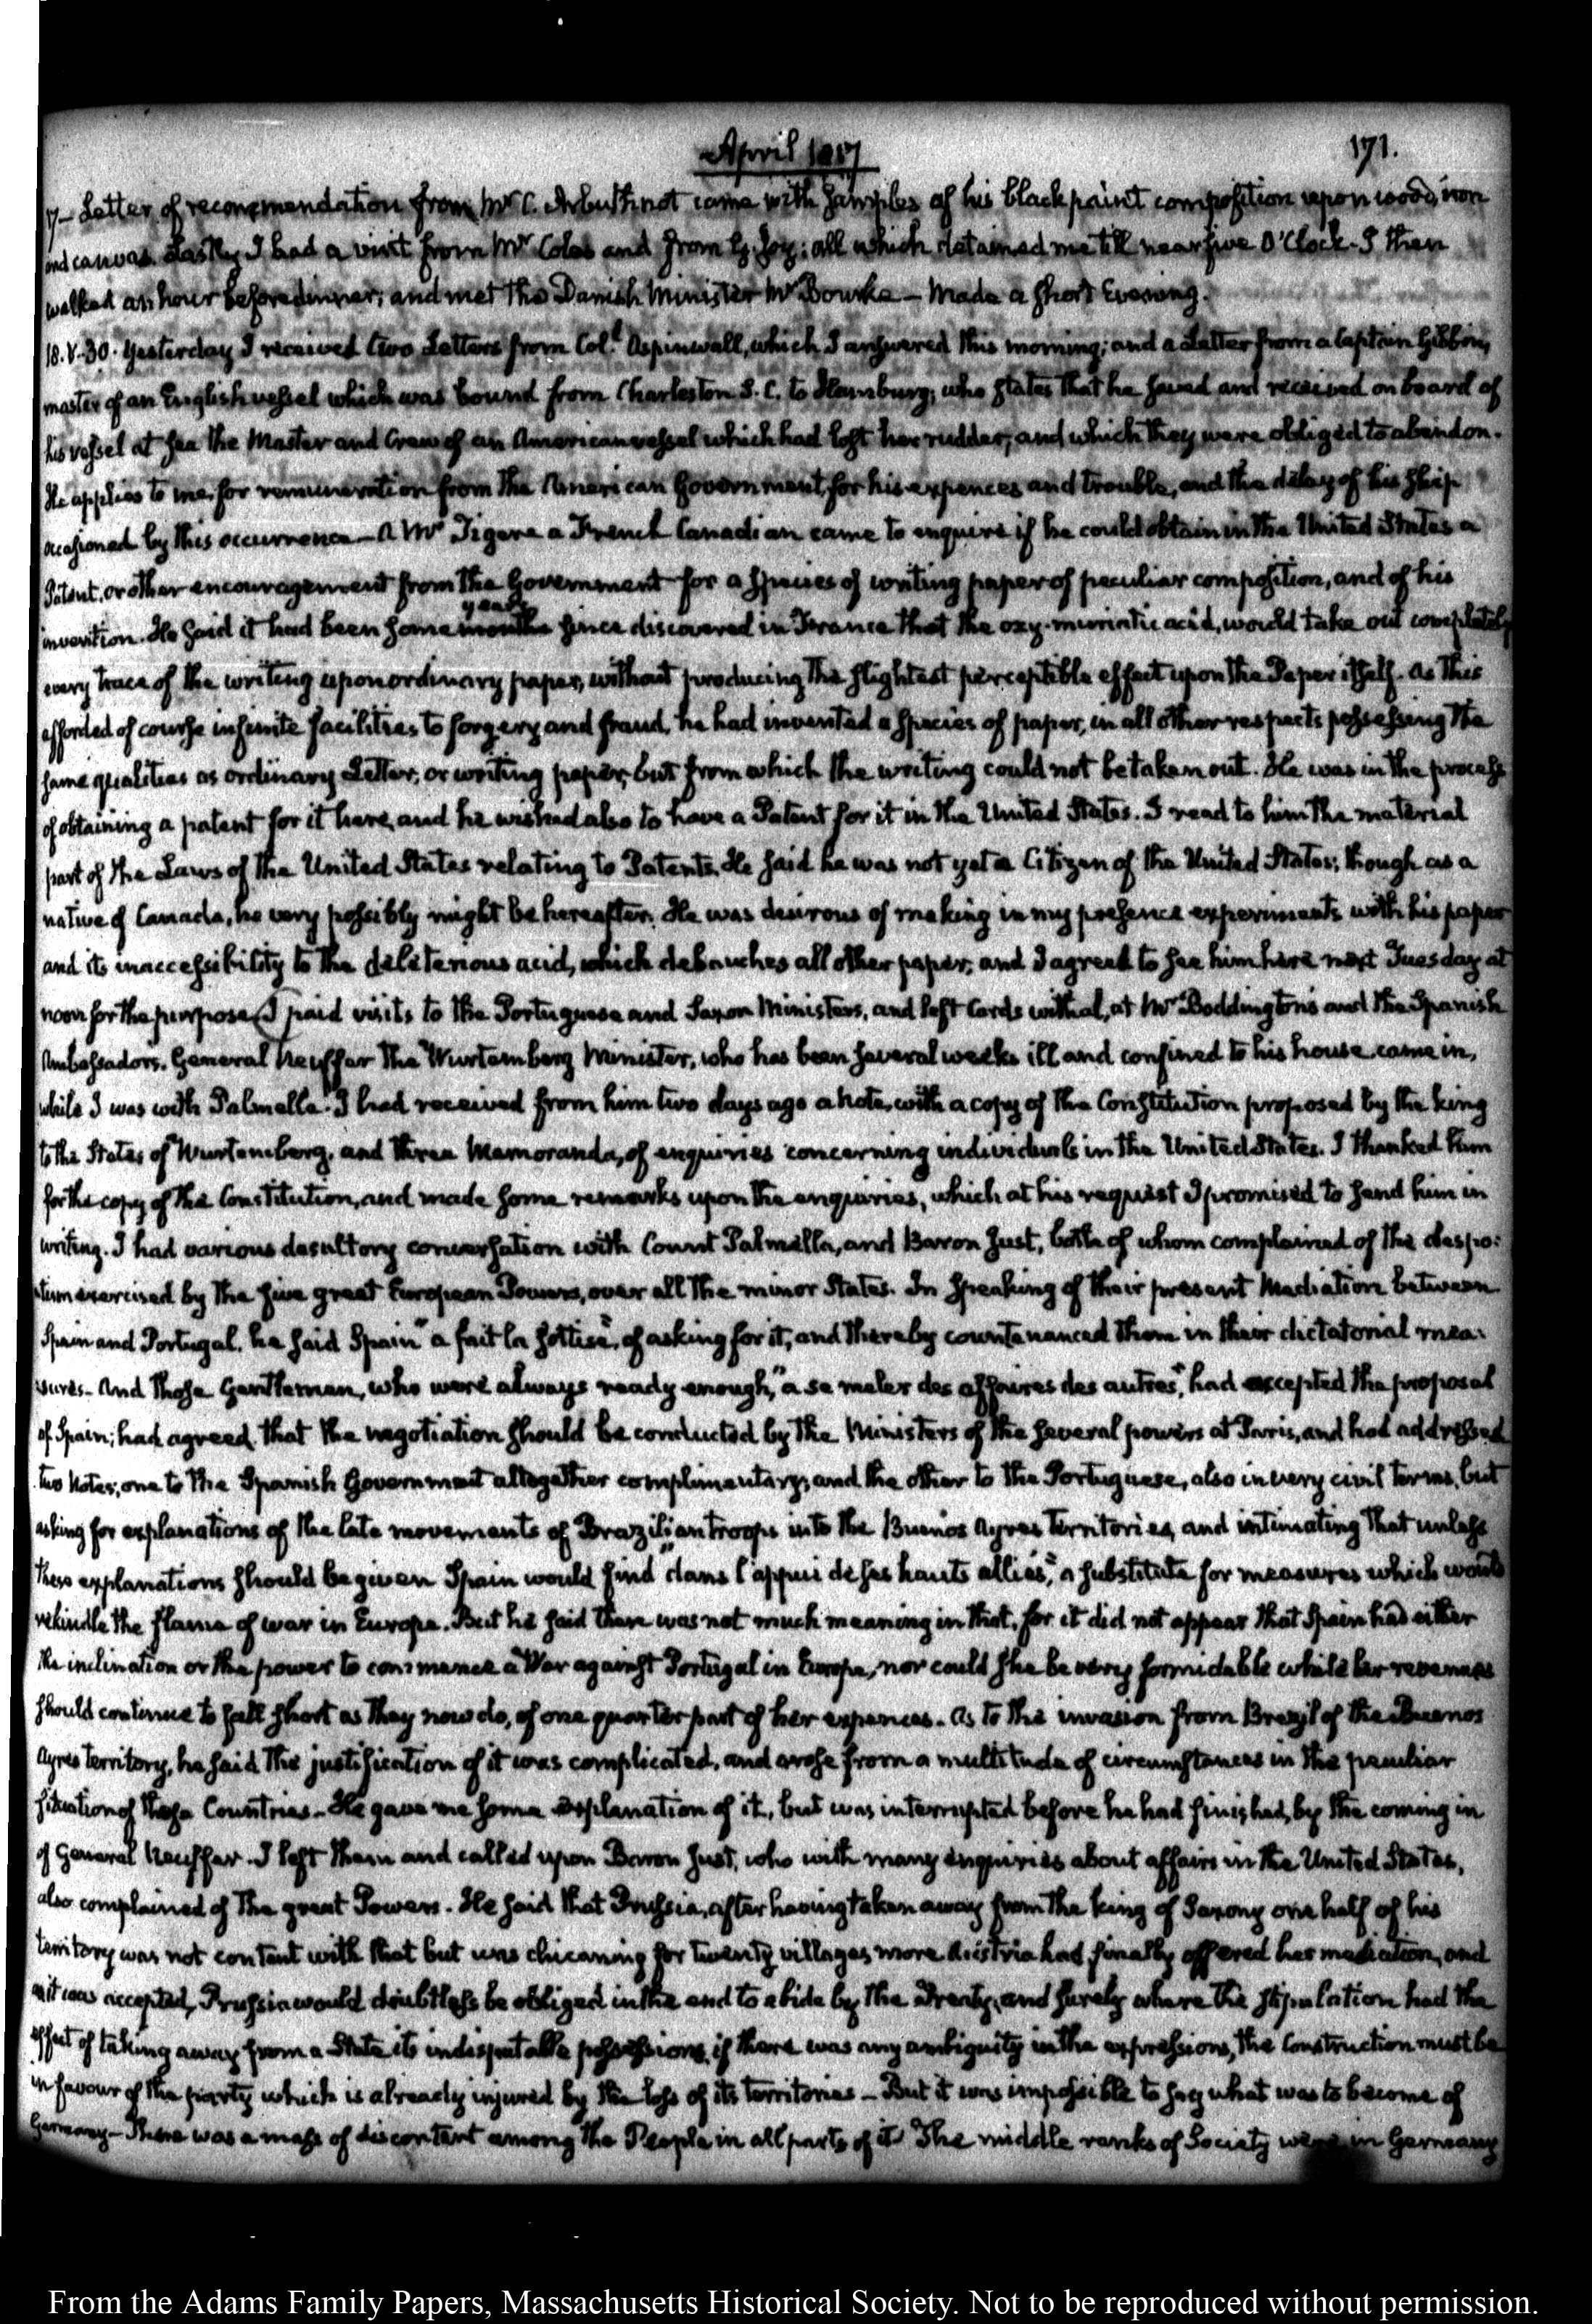 April 1817
171.
17— Letter of recommendation from Mr C. Arbuthnot came with samples of his black paint composition upon wood, iron
and canvas. Lastly I had a visit from Mr Coles and from G. Joy; all which detained me till near five O'Clock. I then
walked an hour before dinner; and met the Danish Minister Mr Bourke — Made a short Evening.
18. V.30. Yesterday I received two Letters from Coll. Aspinwall, which I answered this morning; and a Letter from a Captain Gibbon,
master of an English vessel which was bound from Charleston S. C. to Hamburg; who states that he saved and received on board of
his vessel at sea the Master and Crew of an American vessel which had lost her rudder, and which they were obliged to abandon.
He applies to me, for remuneration from the American Government, for his expences and trouble, and the delay of his ship
occasioned by this occurrence — A Mr Tigere a French Canadian came to enquire if he could obtain in the United States a
Patent, or other encouragement from the Government for a species of writing paper of peculiar composition, and of his
years
invention. He said it had been some months since discovered in France that the oxy-muriatic acid, would take out completely
every trace of the writing upon ordinary paper, without producing the slightest perceptible effect upon the Paper itself. As this
afforded of course infinite facilities to forgery and fraud, he had invented a species of paper, in all other respects possessing the
same qualities as ordinary Letter, or writing paper, but from which the writing could not be taken out. He was in the process
of obtaining a patent for it here, and he wished also to have a Patent for it in the United States. I read to him the material
part of the Laws of the United States relating to Patents. He said he was not yet a Citizen of the United States; though as a
native of Canada, he very possibly might be hereafter. He was desirous of making in my presence experiments with his paper
and its inaccessibility to the deleterious acid, which debauches all other paper; and I agreed to see him here next Tuesday at
noon for the purpose. I paid visits to the Portuguese and Saxon Ministers, and left Cards withal, at Mr Boddington's and the Spanish
Ambassadors. General Neuffer the Wurtemberg Minister, who has been several weeks ill and confined to his house came in,
while I was with Palmella. I had received from him two days ago a Note, with a copy of the Constitution proposed by the king
to the States of Wurtemberg, and three Memoranda, of enquiries concerning individuals in the United States. I thanked him
for the copy of the Constitution, and made some remarks upon the enquiries, which at his request I promised to send him in
writing. I had various desultory conversation with Count Palmella, and Baron Just, both of whom complained of the despo:
tism exercised by the five great European Powers, over all the minor States. In speaking of their present Mediation between
Spain and Portugal, he said Spain "a fait la sottise", of asking for it, and thereby countenanced them in their dictatorial mea:
sures. And those Gentlemen, who were always ready enough, "a se meler des affaires des autres", had accepted the proposal
of Spain; had agreed that the negotiation should be conducted by the Ministers of the several powers at Paris, and had addressed
two Notes; one to the Spanish Government altogether complimentary; and the other to the Portuguese, also in very civil terms, but
asking for explanations of the late movements of Brazilian troops into the Buenos Ayres Territories, and intimating that unless
these explanations should be given Spain would find "dans l'appui de ses hauts alliés", a substitute for measures which would
rekindle the flame of war in Europe. But he said there was not much meaning in that, for it did not appear that Spain had either
the inclination or the power to commence a War against Portugal in Europe, nor could she be very formidable while her revenues
should continue to fall short as they now do, of one quarter part of her expences. As to the invasion from Brazil of the Buenos
Ayres territory, he said the justification of it was complicated, and arose from a multitude of circumstances in the peculiar
situation of those Countries. He gave me some explanation of it, but was interrupted before he had finished, by the coming in
of General Neuffer. I left them and called upon Baron Just, who with many enquiries about affairs in the United States,
also complained of the great Powers. He said that Prussia, after having taken away from the king of Saxony one half of his
territory was not content with that but was chicaning for twenty villages more. Austria had finally offered her mediation, and
as it was accepted, Prussia would doubtless be obliged in the end to abide by the Treaty, and surely where the stipulation had the
effect of taking away from a State its indisputable possessions, if there was any ambiguity in the expressions, the Construction must be
in favour of the party which is already injured by the loss of its territories — But it was impossible to say what was to become of
Germany — There was a mass of discontent among the People in all parts of it. The middle ranks of Society were in Germany
From the Adams Family Papers, Massachusetts Historical Society. Not to be reproduced without permission.